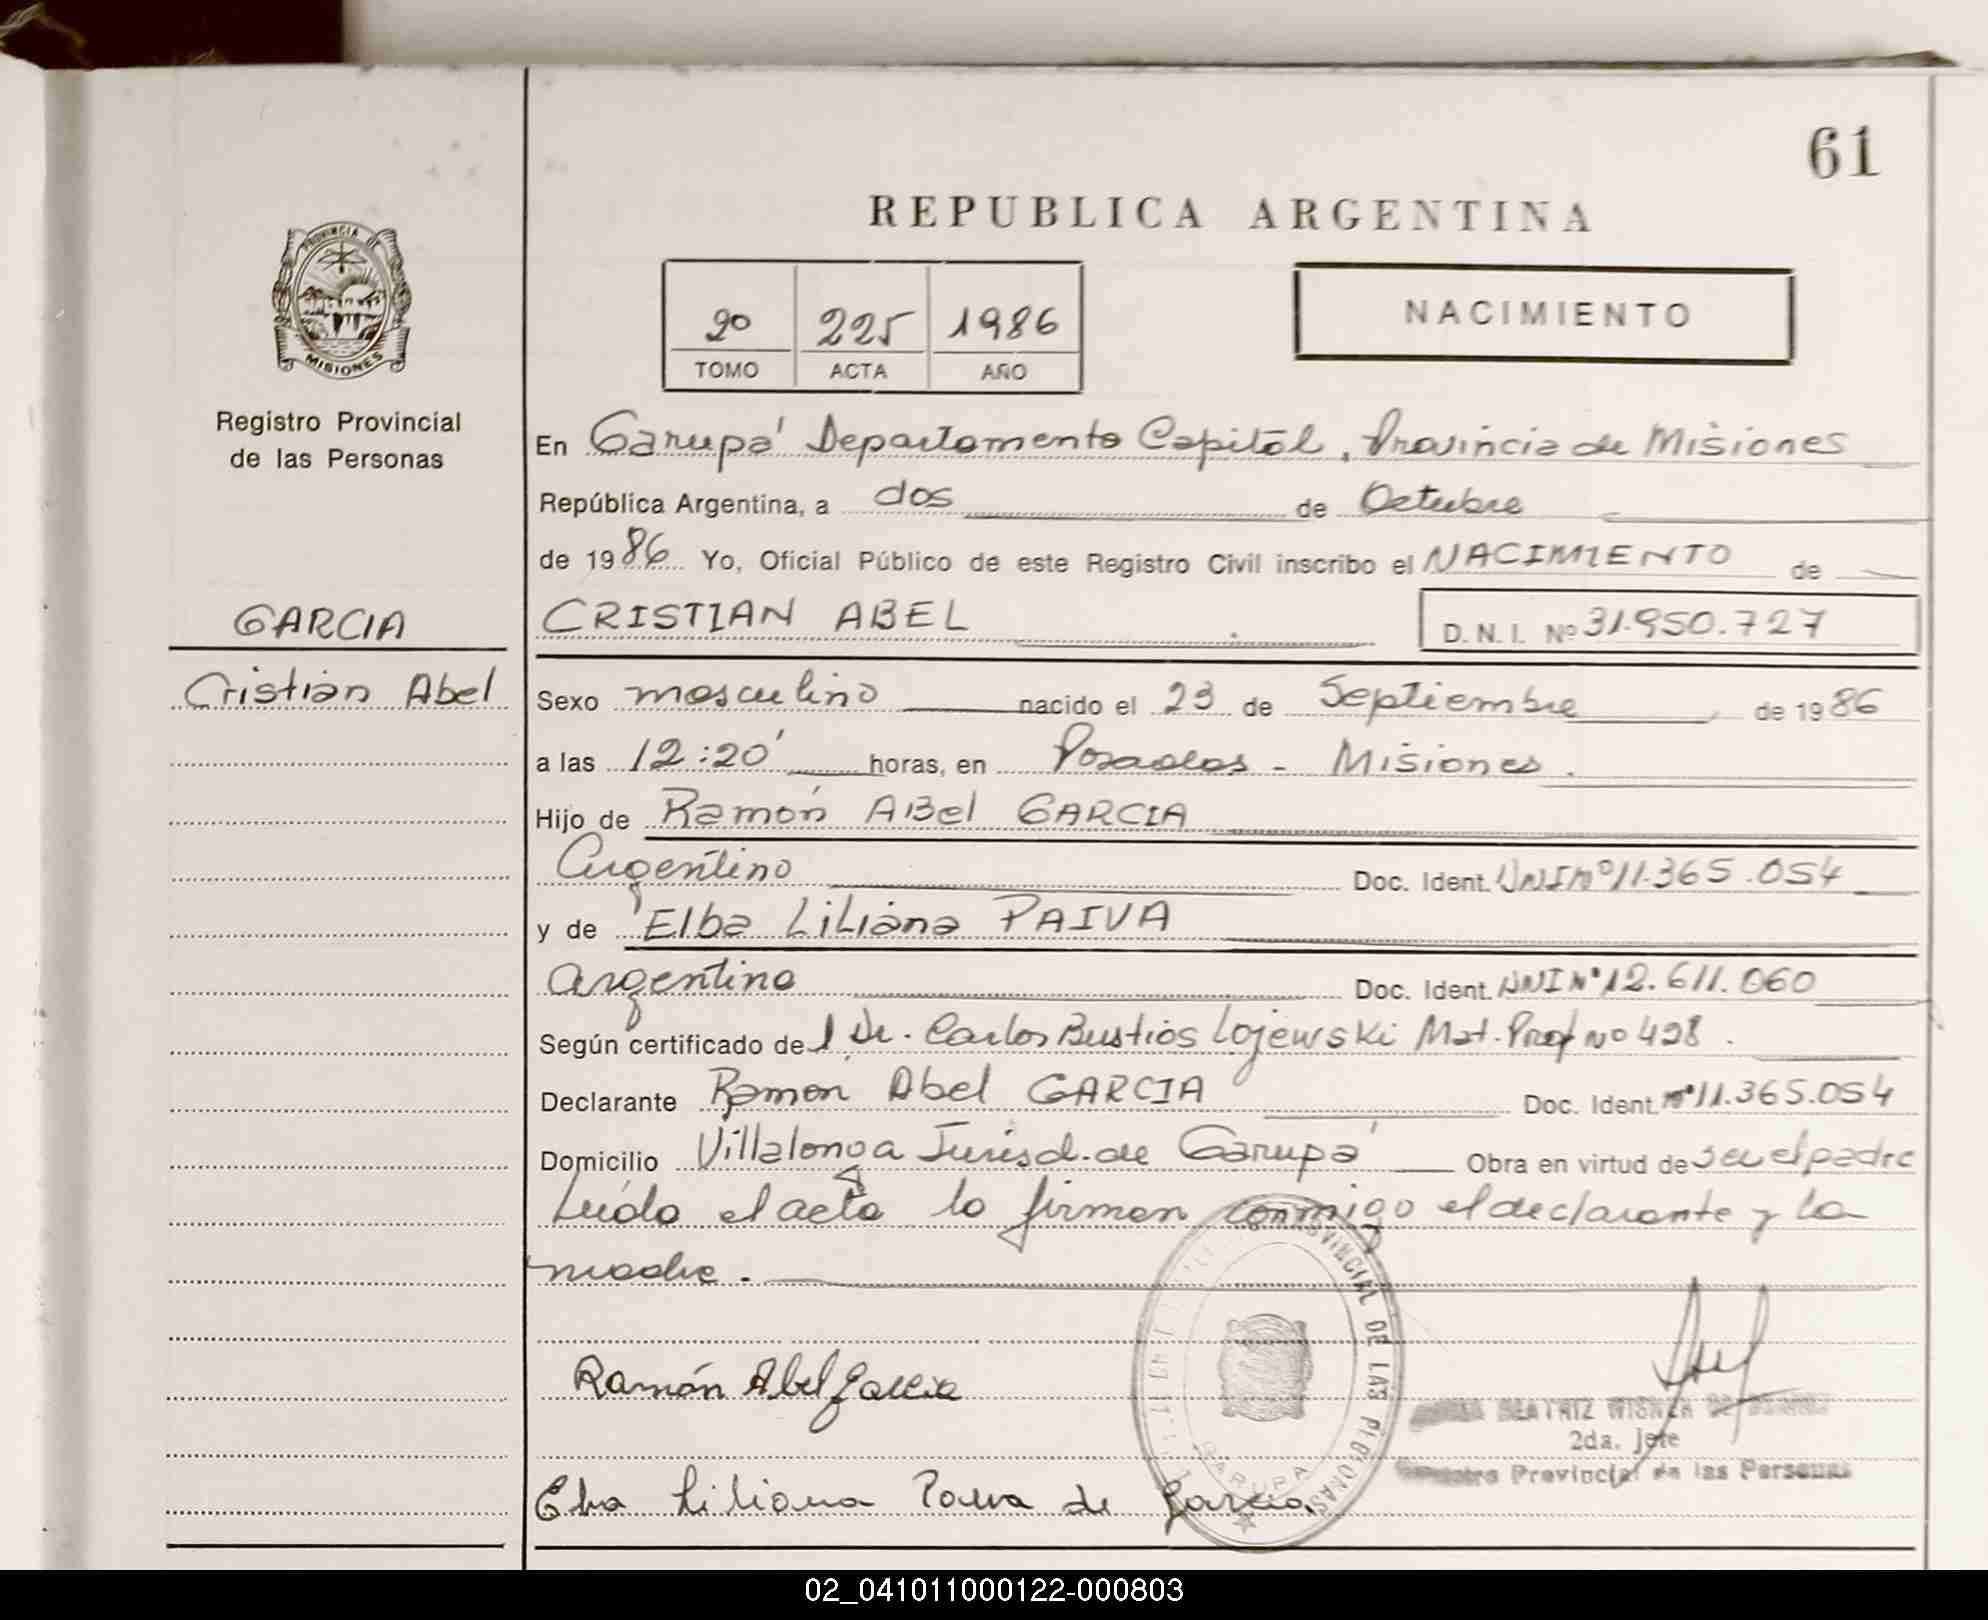 61
REPUBLICA ARGENTINA
PROVINCIA DE
MISIONES
Registro Provincial
de las Personas
2º 225 1986
TOMO ACTA AÑO
NACIMIENTO
En Garupá Departamento Capital, Provincia de Misiones
República Argentina, a dos de Octubre
de 1986 Yo, Oficial Público de este Registro Civil inscribo el NACIMIENTO de
GARCIA
CRISTIAN ABEL
D.N.I. Nº 31.950.727
Cristian Abel
Sexo masculino nacido el 23 de Septiembre de 1986
a las 12:20' horas, en Posadas - Misiones.
Hijo de Ramón Abel GARCIA
Argentino Doc. Ident. DNI Nº 11.365.054
y de Elba Liliana PAIVA
argentina Doc. Ident. DNI Nº 12.611.060
Según certificado del Dr. Carlos Bustios Lojewski Mat. Prof Nº 428.
Declarante Ramón Abel GARCIA Doc. Ident. Nº 11.365.054
Domicilio Villalonga Jurisd. de Garupá Obra en virtud de ser el padre
Leída el acta lo firman conmigo el declarante y la
madre.
PROVINCIAL DE LAS PERSONAS
GARUPA
Ramón Abel Garcia
BEATRIZ WISNER DE
2da. Jefe
Registro Provincial de las Personas
Elba Liliana Paiva de Garcia
02_041011000122-000803